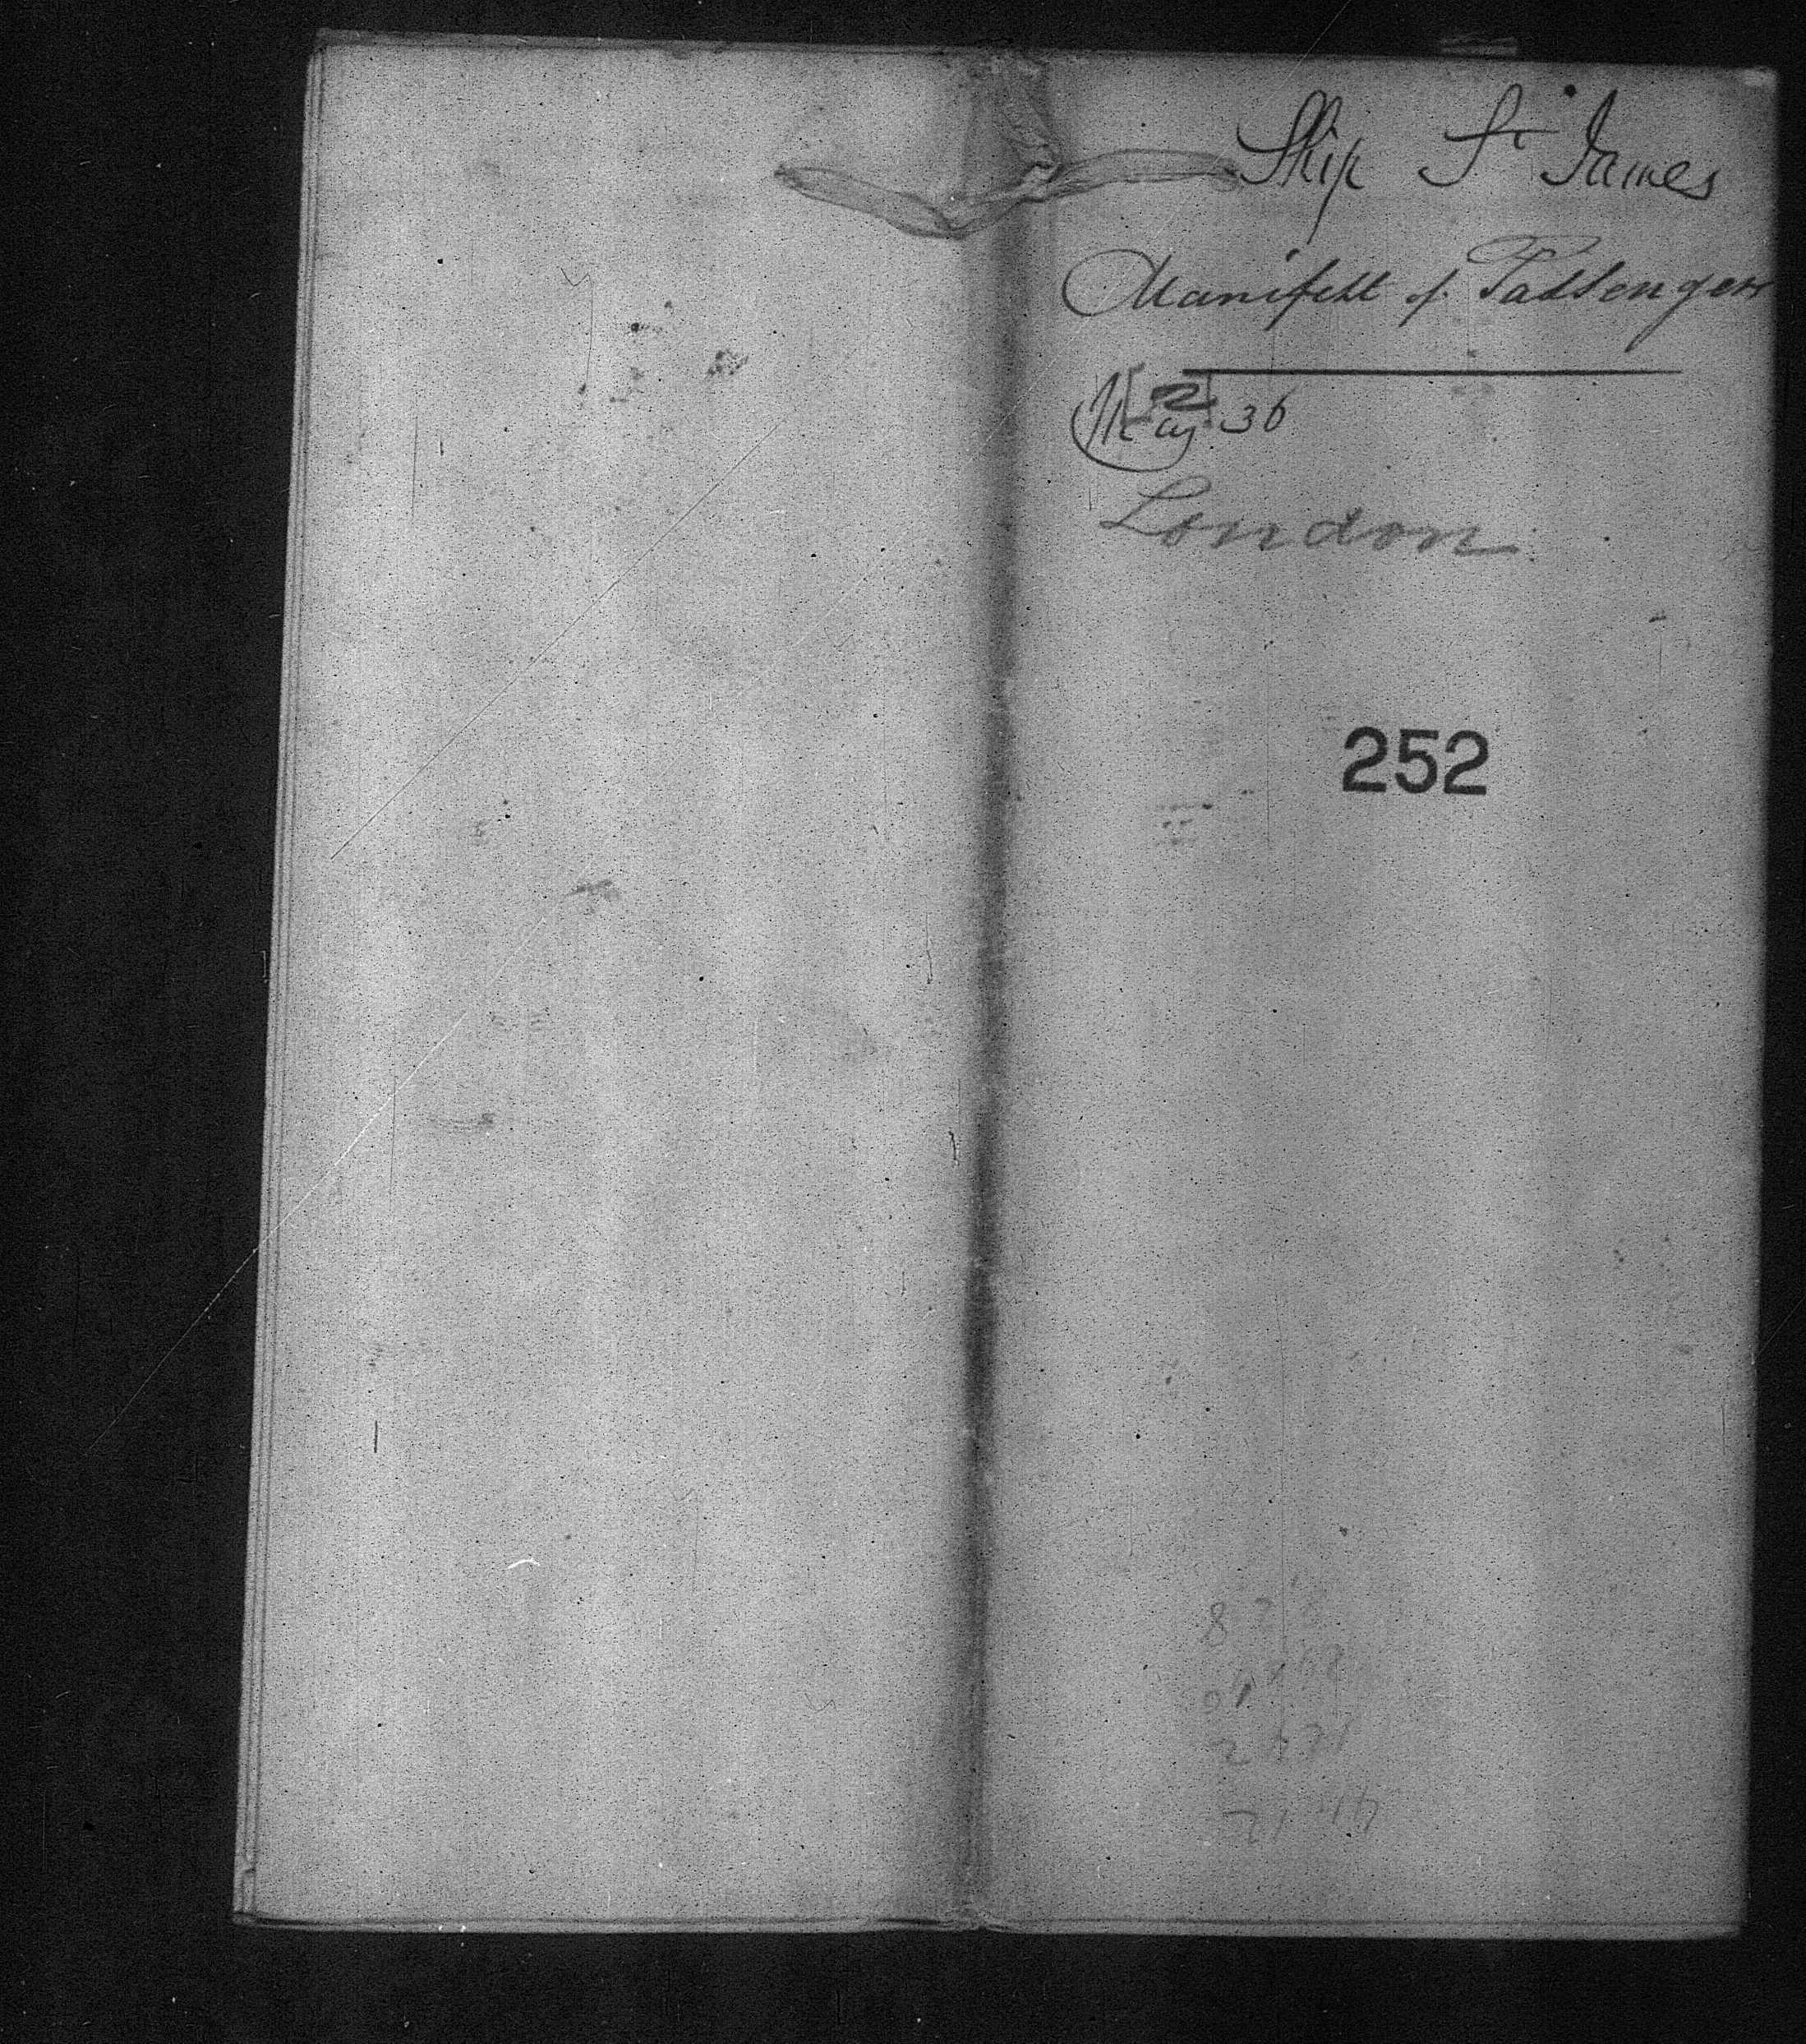 Ship St James
Manifest of Passengers
May 36
London
252